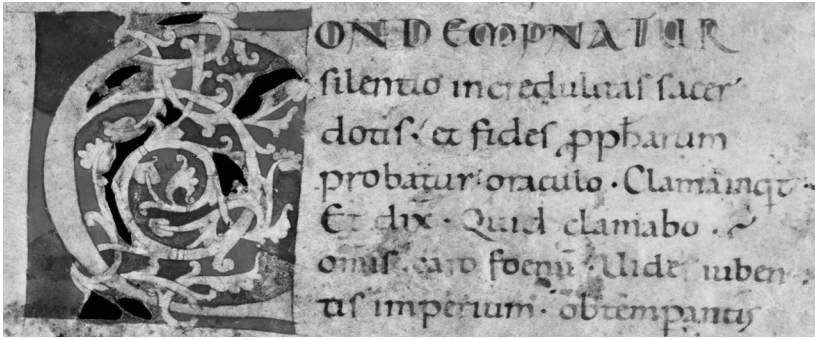 CONDEMPNATUR
silentio incredulitas sacer
dotis. et fides ꝓph̄arum
probatur oraculo. Clama inqͥt.
Et dix. Quid clamabo.
omīs caro foenū. Uide iuben
tis imperium. obtemꝑantis